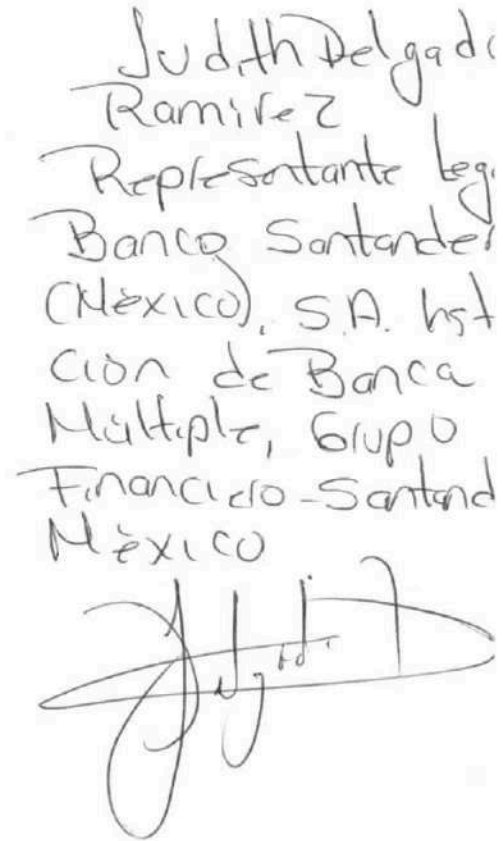 Judith Delgad
Ramirez
Representante Leg
Banco Santander
(México), S.A. Inst
ción de Banca
Múltiple, Grupo
Financiero-Santand
México